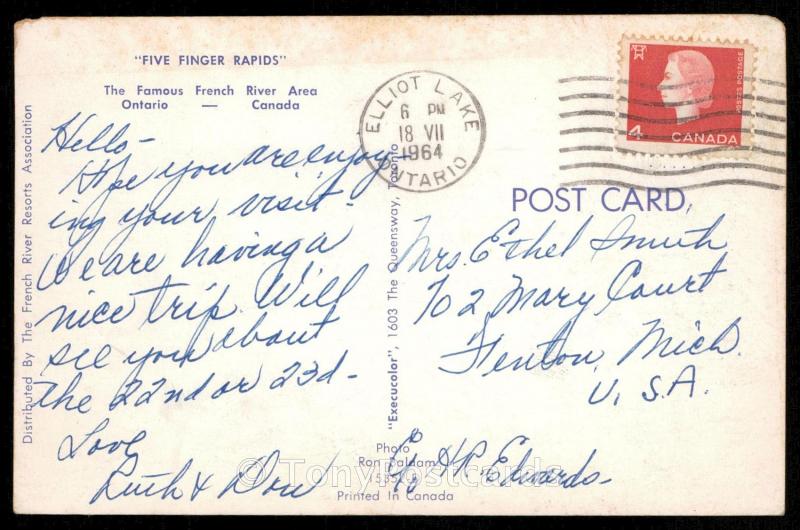 "FIVE FINGER RAPIDS"
The Famous French River Area
Ontario — Canada
Hello-
Hope you are enjoy-
ing your visit-
We are having a
nice trip. Will
see you about
the 22nd or 23d-
Love
Ruth & Don
Distributed By The French River Resorts Association
"Execucolor", 1603 The Queensway, Toronto
Photo
Ron
Printed In Canada
ELLIOT LAKE
6 PM
18 VII
1964
ONTARIO
4 CANADA
POSTES POSTAGE
POST CARD
Mrs. Ethel Smith
702 Mary Court
Fenton, Mich.
U.S.A.
c/o H P Edwards-
©TonyPostcards.com